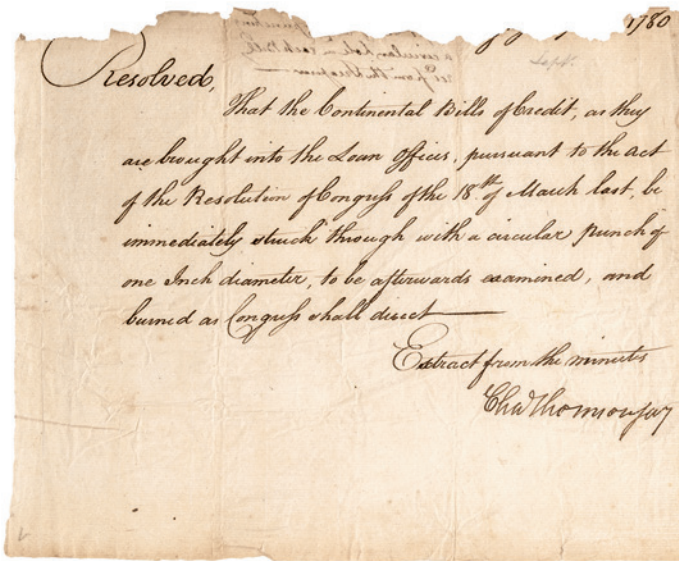 1780
Sept.
Resolved,
That the Continental Bills of Credit, as they
are brought into the Loan Offices, pursuant to the Act
of the Resolution of Congress of the 18.th of March last, be
immediately struck through with a circular punch of
one Inch diameter, to be afterwards examined, and
burned as Congress shall direct
Extract from the minutes
Cha Thomson secy